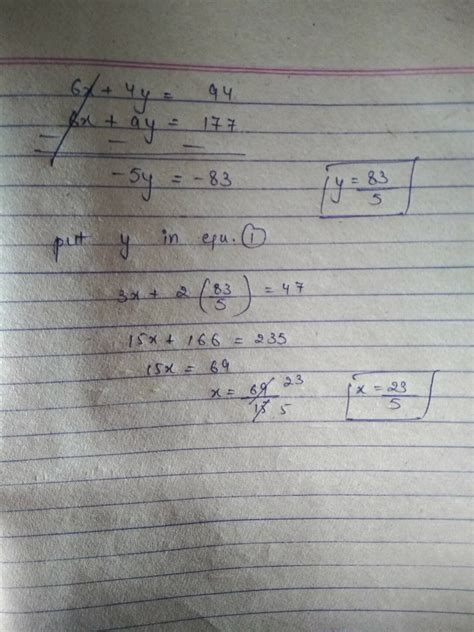 6x + 4y = 94
6x + 9y = 177
− − −
-5y = -83 y = 83/5
putt y in equ. ①
3x + 2 (83/5) = 47
15x + 166 = 235
15x = 69
x = 69/15 23/5 x = 23/5